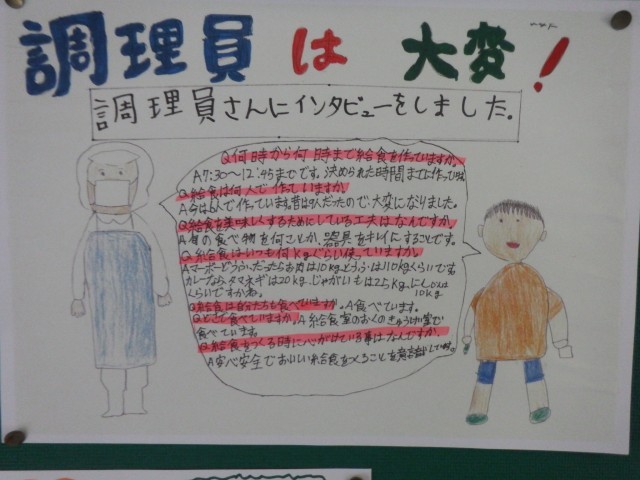 調理員は大変!
調理員さんにインタビューをしました。
Q何時から何時まで給食を作っていますか。
A7:30〜12:45までです。決められた時間までに作って
Q給食は何人で作っていますか。
A今は6人で作っています。昔は9人だったので、大変になりました。
Q給食を美味しくするためにしている工夫はなんですか。
A旬の食べ物を何ことか、器具をキレイにすることです。
Q給食はいつも何kgぐらい使っていますか。
Aマーボーどうふだったらお肉は10kgとうふは110kgくらいです。
カレーなら、タマネギは20kg、じゃがいもは25kg、にんじんは
くらいですかね。 10kg
Q給食は自分たちも食べていますか。A食べています。
Qどこで食べていますか。A給食室のおくのきゅうけい室で
食べています。
Q給食をつくる時に心がけている事はなんですか。
A安心安全でおいしい給食をつくることを意識しています。